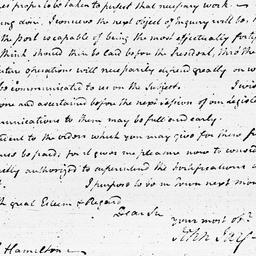 proper to be taken to perfect that necessary work —
being done. I conceive the next object of Inquiry will be,
the port is capable of being the most effectually
think should then be laid before the President, thro' the
future operations will necessarily depend greatly on
be communicated to us on the Subject. I wish
done and ascertained before the next session of our
communications to them may be full and early.
to the orders which you may give for these
be paid, for it gives me pleasure now to consider
authorized to superintend the fortifications
I purpose to be in town next
with great Esteem & Regard
Dear Sir
your most obt
John Jay
Hamilton